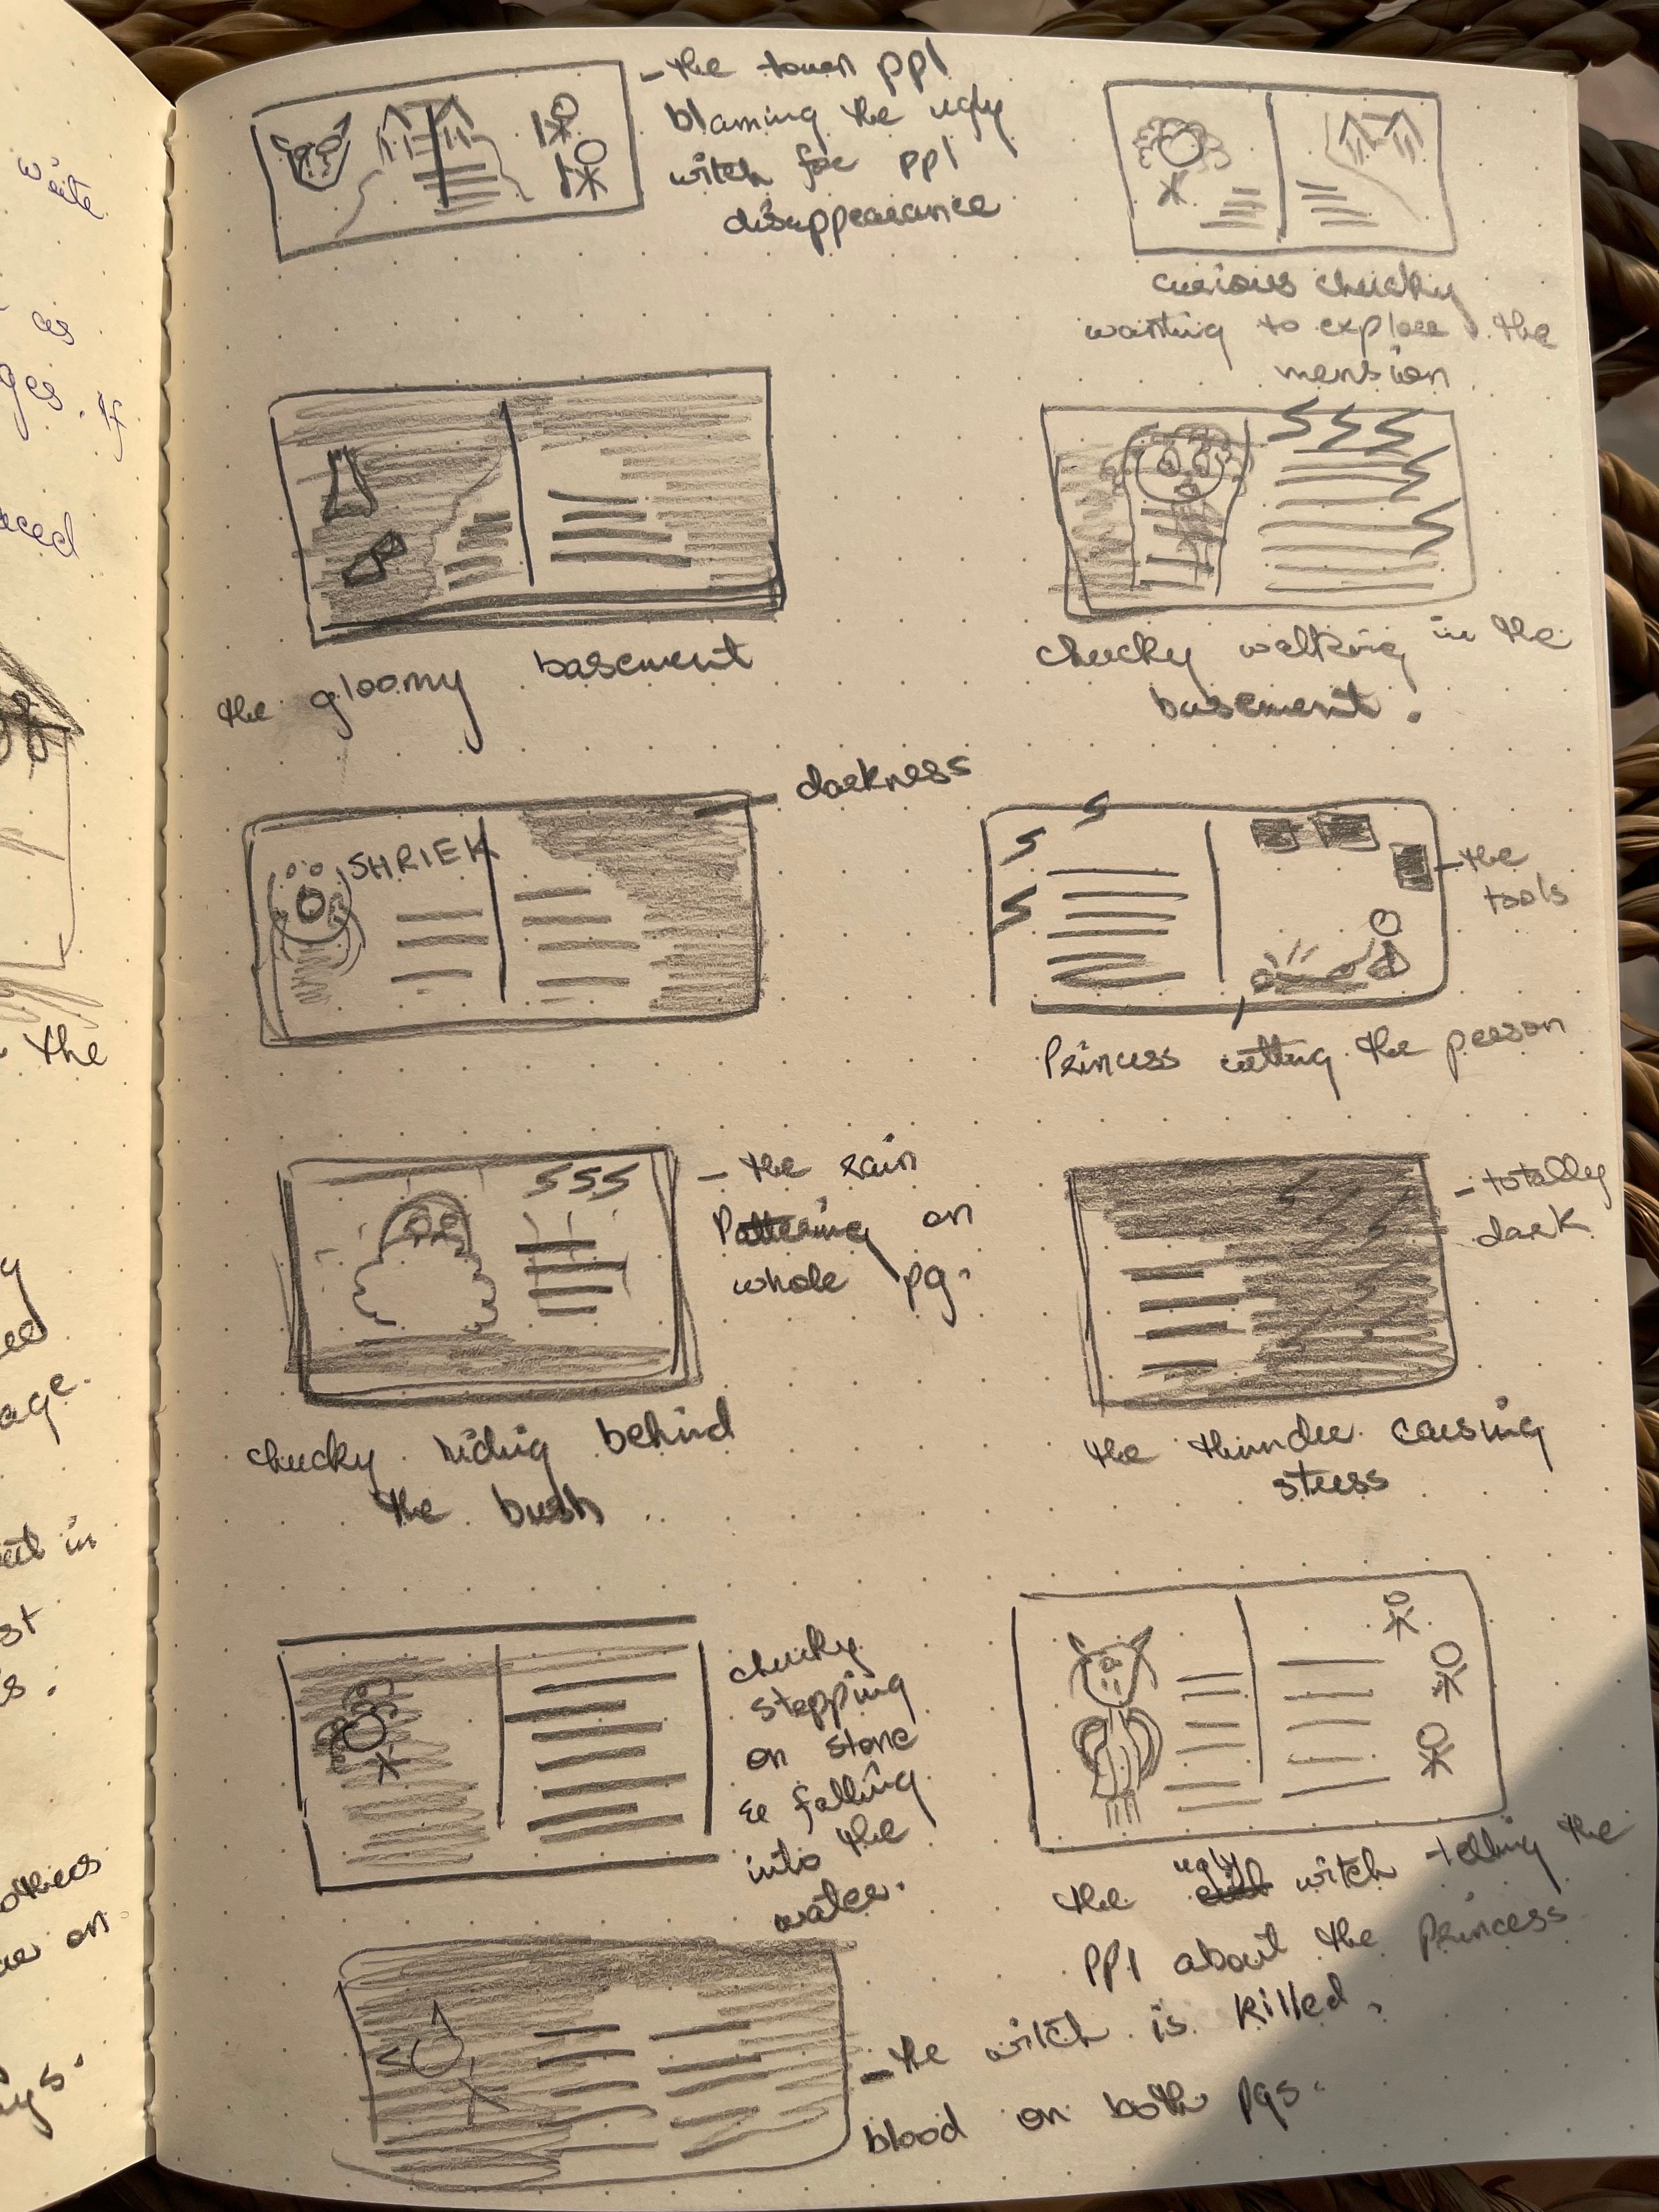 write
as
ges. If
aced
the
y
ed
age.
st
s.
others
on
ys.
- the town ppl
blaming the ugly
witch for ppl
disappearance
curious chucky
wanting to explore the
mension
the gloomy basement
chucky walking in the
basement.
darkness
SHRIEK
- the
tools
Princess cutting the person
- the rain
Pattering on
whole pg.
chucky hiding behind
the bush
- totally
dark
the thunder causing
stress
chucky
stepping
on stone
& falling
into the
water.
the ugly witch telling the
ppl about the Princess
- the witch is killed.
blood on both pgs.